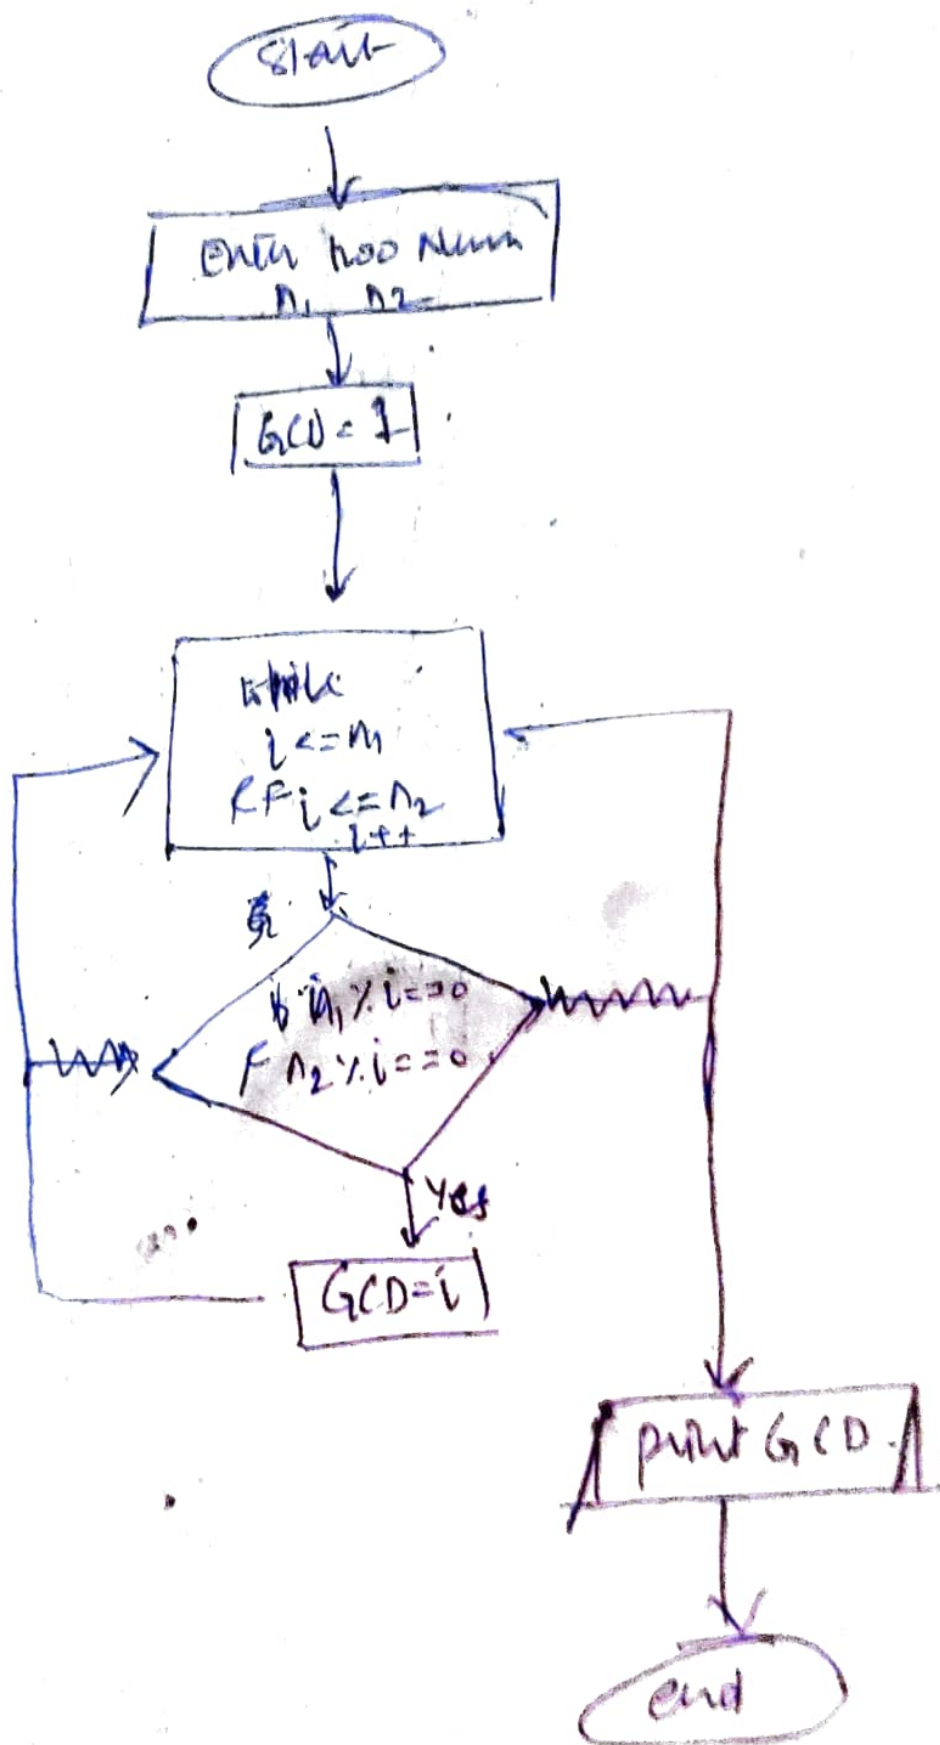 Start
Enter two Num
n1 n2
GCD = 1
while
i <= n1
i <= n2
i++
if n1 % i == 0
n2 % i == 0
Yes
GCD = i
print GCD.
end